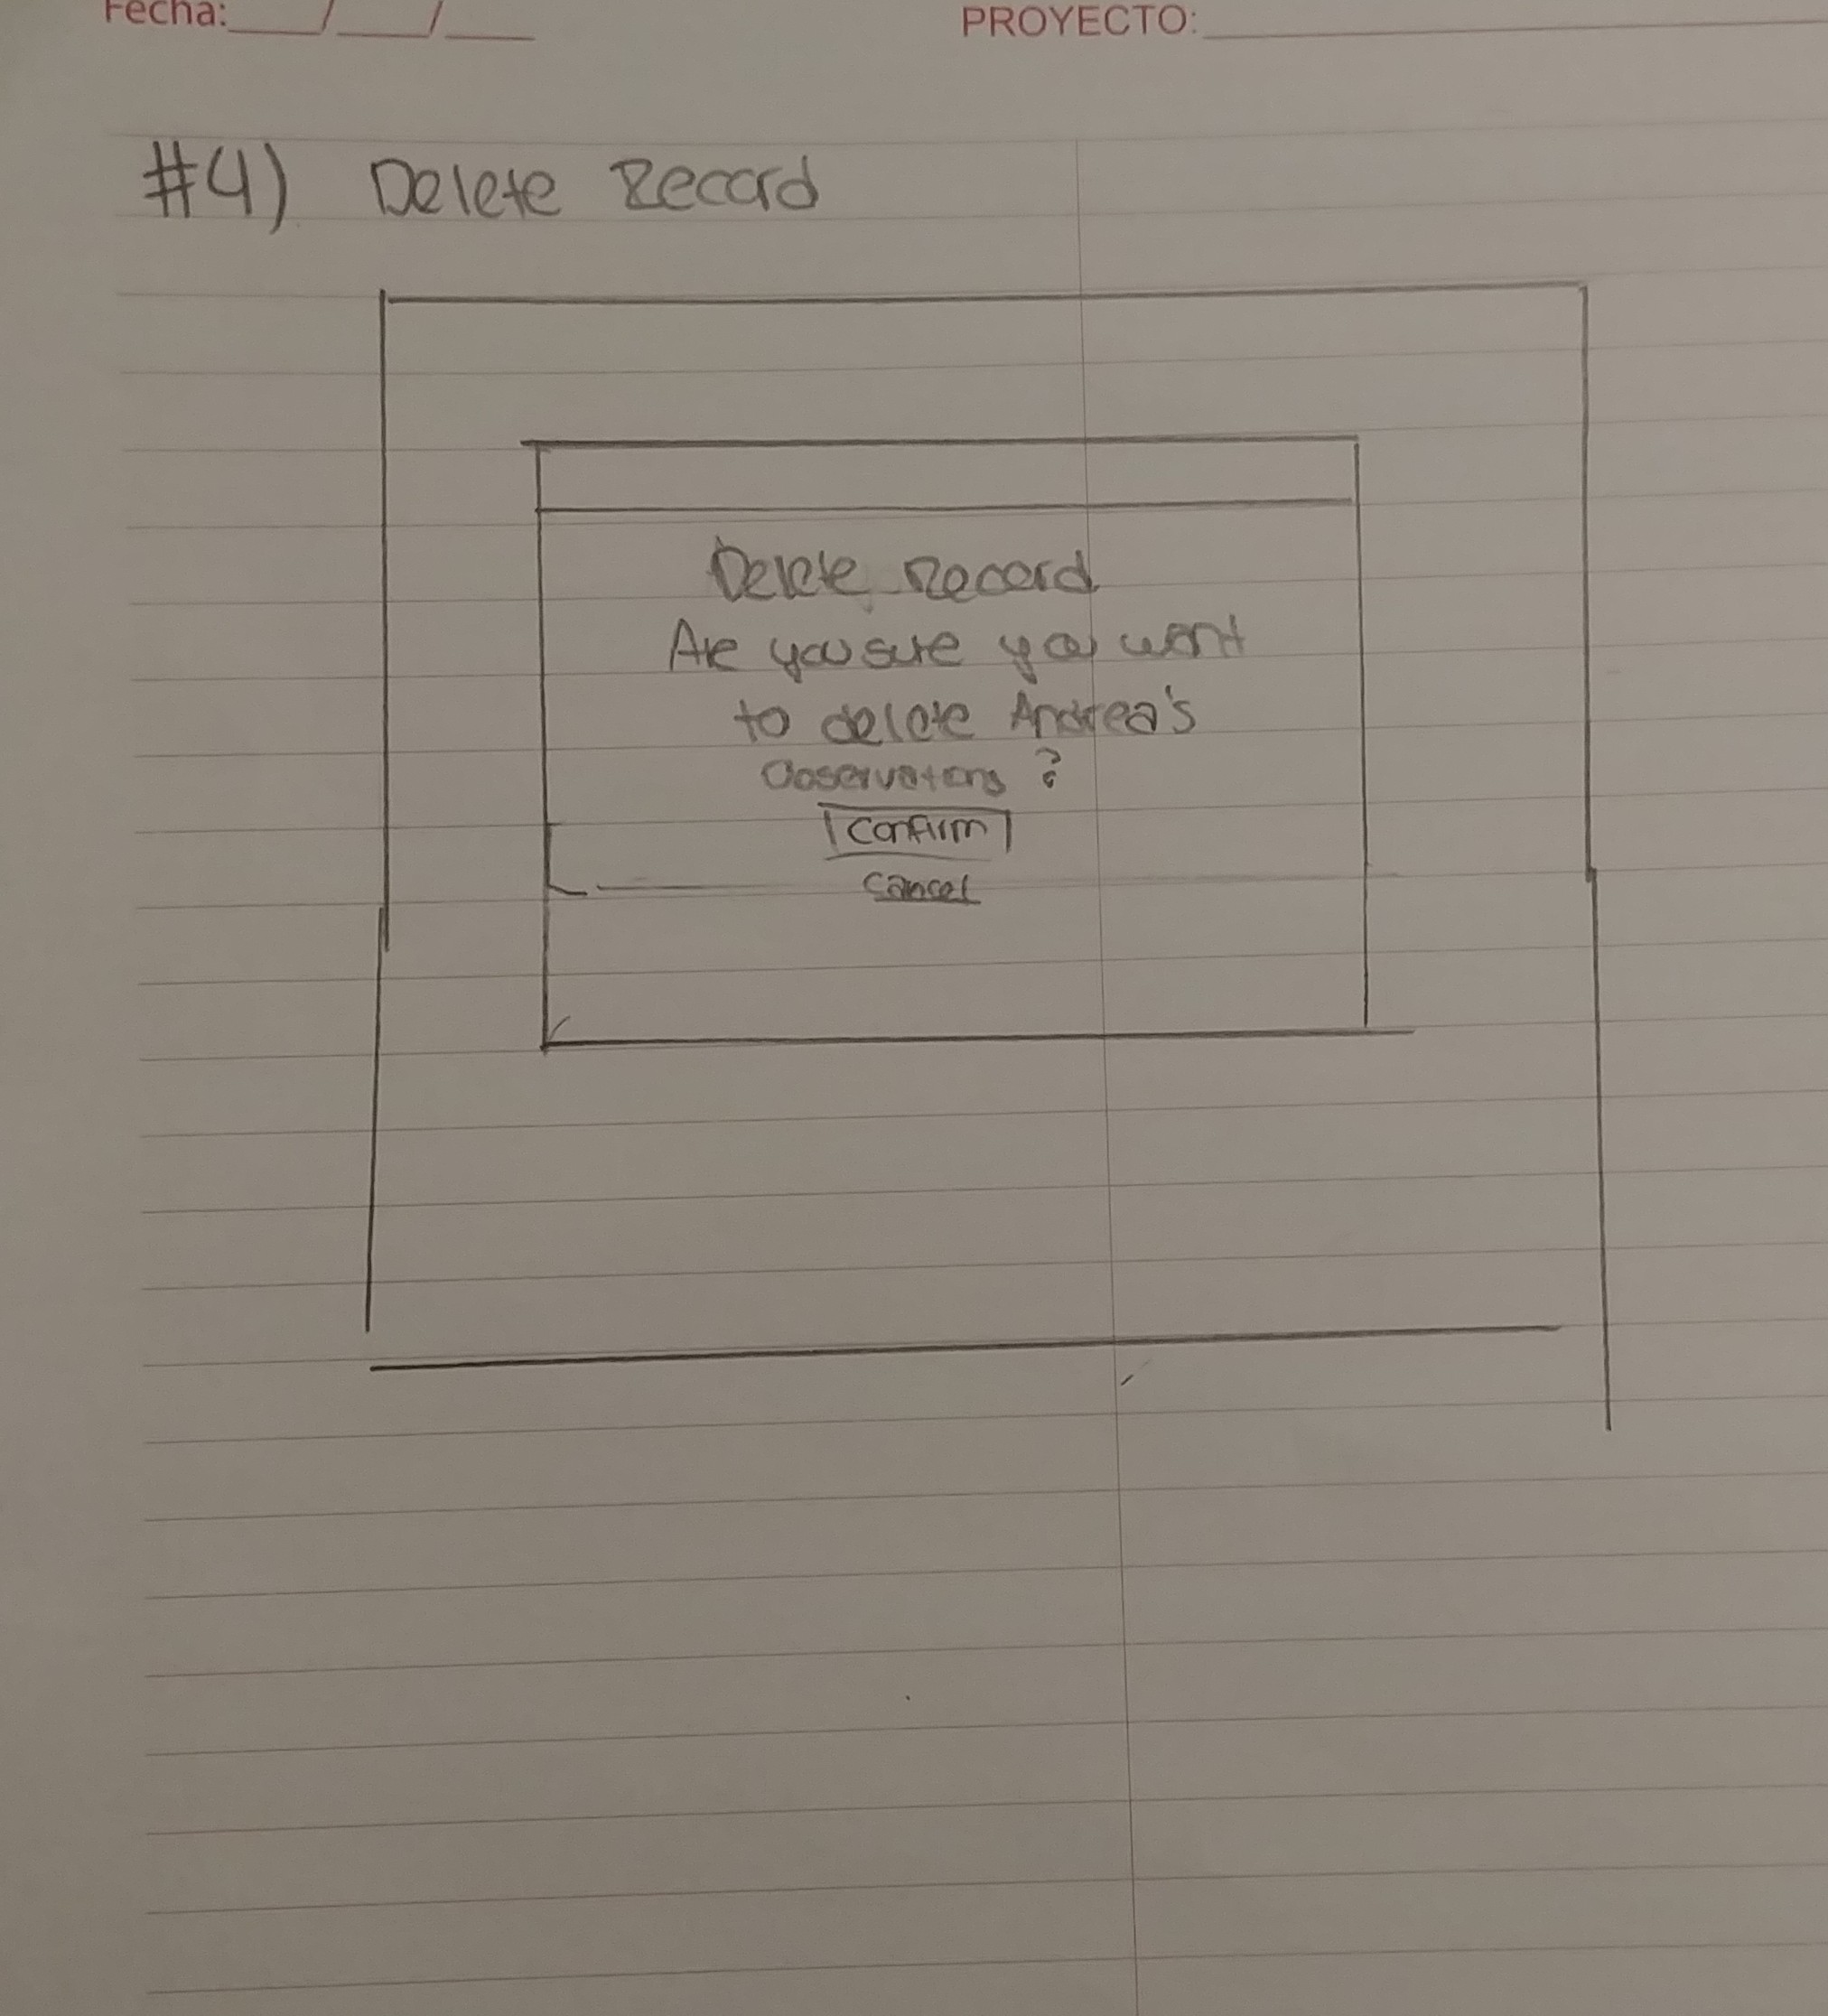 Fecha:___/___/___ PROYECTO:
#4) Delete Record
Delete Record
Are you sure you want
to delete Andrea's
Observations ?
Confirm
Cancel